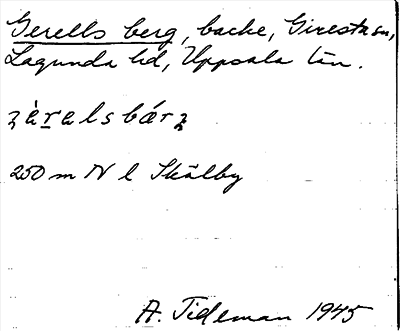 Gerells berg, backe, Giresta sn,
Lagunda hd, Uppsala län.
ʒèrelsbárʒ
250 m N l Skälby
A. Tideman 1945